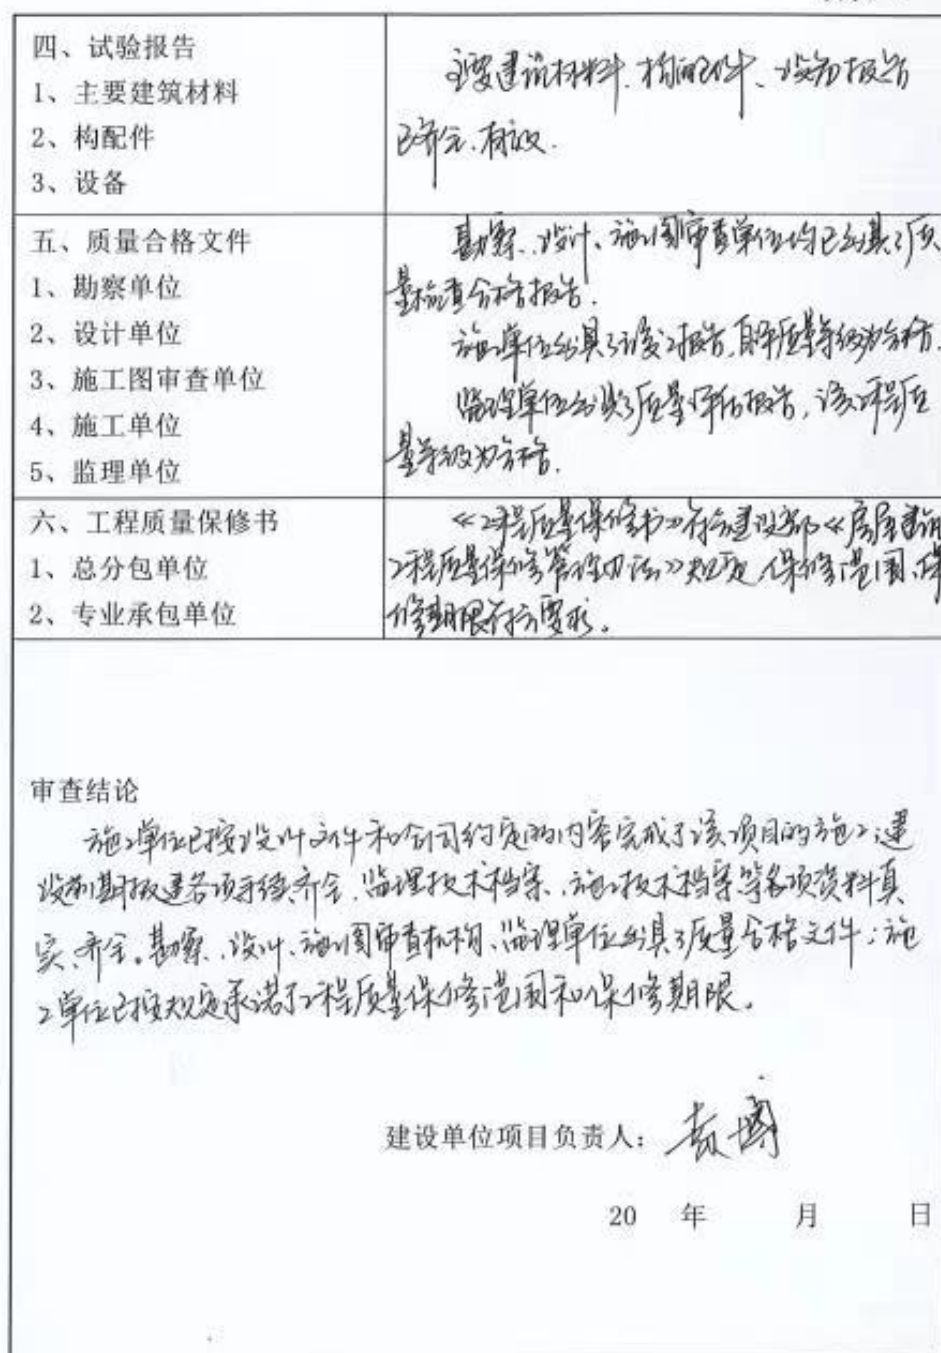 四、试验报告
1、主要建筑材料
2、构配件
3、设备
主要建筑材料、构配件、设备报告
已齐全、有效.
五、质量合格文件
1、勘察单位
2、设计单位
3、施工图审查单位
4、施工单位
5、监理单位
勘察、设计、施工图审查单位均已出具了质
量检查合格报告.
施工单位出具了竣工报告,自评质量等级为合格.
监理单位出具了质量评估报告,该工程质
量等级为合格.
六、工程质量保修书
1、总分包单位
2、专业承包单位
《工程质量保修书》符合建设部《房屋建筑
工程质量保修管理办法》规定,保修范围、保
修期限符合要求。
审查结论
施工单位已按设计文件和合同约定的内容完成了该项目的施工;建
设前期报建各项手续齐全,监理技术档案、施工技术档案等各项资料真
实、齐全。勘察、设计、施工图审查机构、监理单位出具了质量合格文件;施
工单位已按规定承诺了工程质量保修范围和保修期限。
建设单位项目负责人:
20 年 月 日